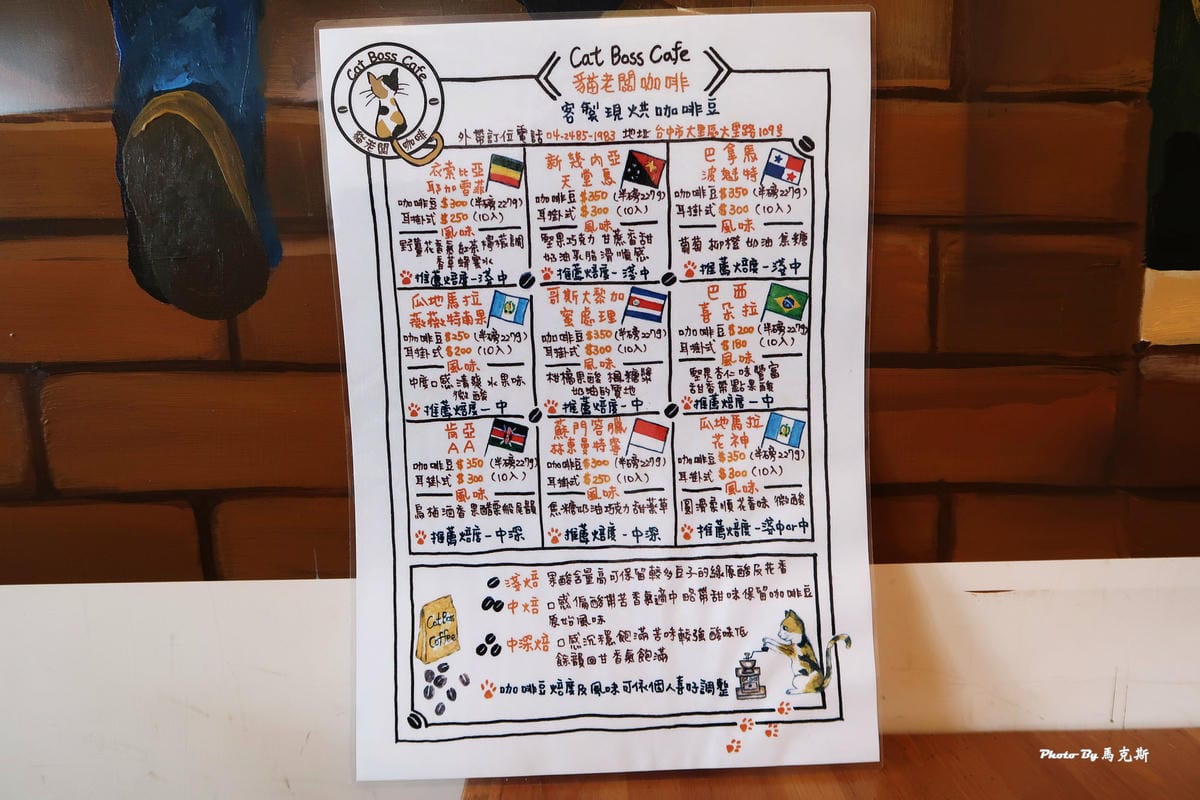 Cat Boss Cafe
貓老闆 咖啡
Cat Boss Cafe
貓老闆咖啡
客製現烘咖啡豆
外帶訂位電話 04-2485-1983 地址 台中市大里區大里路109号
衣索比亞
耶加雪菲
咖啡豆 $300 (半磅227g)
耳掛式 $250 (10入)
風味
野薑花香氣 紅茶 檸檬調
香草蜂蜜水
推薦焙度-淺中
新幾內亞
天堂鳥
咖啡豆 $350 (半磅227g)
耳掛式 $300 (10入)
風味
堅果巧克力 甘蔗香甜
奶油乳脂滑順感
推薦焙度-淺中
巴拿馬
波魁特
咖啡豆 $350 (半磅227g)
耳掛式 $300 (10入)
風味
葡萄 柳橙 奶油 焦糖
推薦焙度-淺中
瓜地馬拉
薇薇特南果
咖啡豆 $250 (半磅227g)
耳掛式 $200 (10入)
風味
中度口感 清爽 水果味
微酸
推薦焙度-中
哥斯大黎加
蜜處理
咖啡豆 $350 (半磅227g)
耳掛式 $300 (10入)
風味
柑橘果酸 楓糖漿
奶油的質地
推薦焙度-中
巴西
喜朵拉
咖啡豆 $200 (半磅227g)
耳掛式 $180 (10入)
風味
堅果杏仁味豐富
甜香帶點果酸
推薦焙度-中
肯亞
AA
咖啡豆 $350 (半磅227g)
耳掛式 $300 (10入)
風味
烏梅酒香 果醋栗般尾韻
推薦焙度-中深
蘇門答臘
林東曼特寧
咖啡豆 $300 (半磅227g)
耳掛式 $250 (10入)
風味
焦糖奶油巧克力 甜菸草
推薦焙度-中深
瓜地馬拉
花神
咖啡豆 $350 (半磅227g)
耳掛式 $300 (10入)
風味
圓滑柔順 花香味 微酸
推薦焙度-淺中or中
淺焙 果酸含量高可保留較多豆子的綠原酸及花香
中焙 口感偏酸帶苦 香氣適中 略帶甜味 保留咖啡豆
原始風味
中深焙 口感沉穩飽滿 苦味較強 酸味低
餘韻回甘香氣飽滿
Cat Boss
Coffee
咖啡豆焙度及風味可依個人喜好調整
Photo By 馬克斯